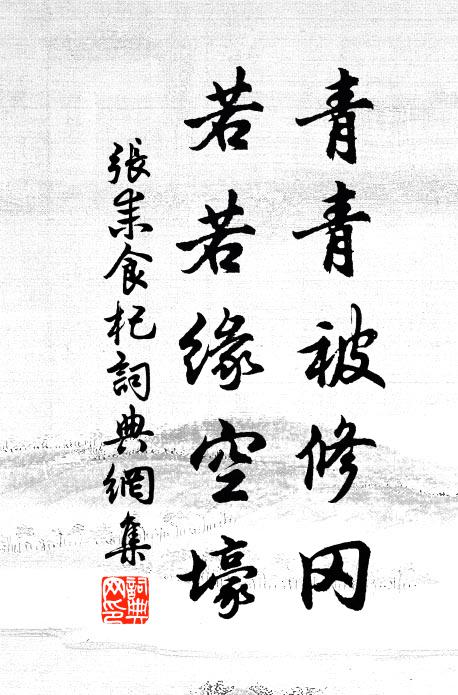 青青被修冈
若若緣空壕
張耒食杞詞典網集
詞典网印